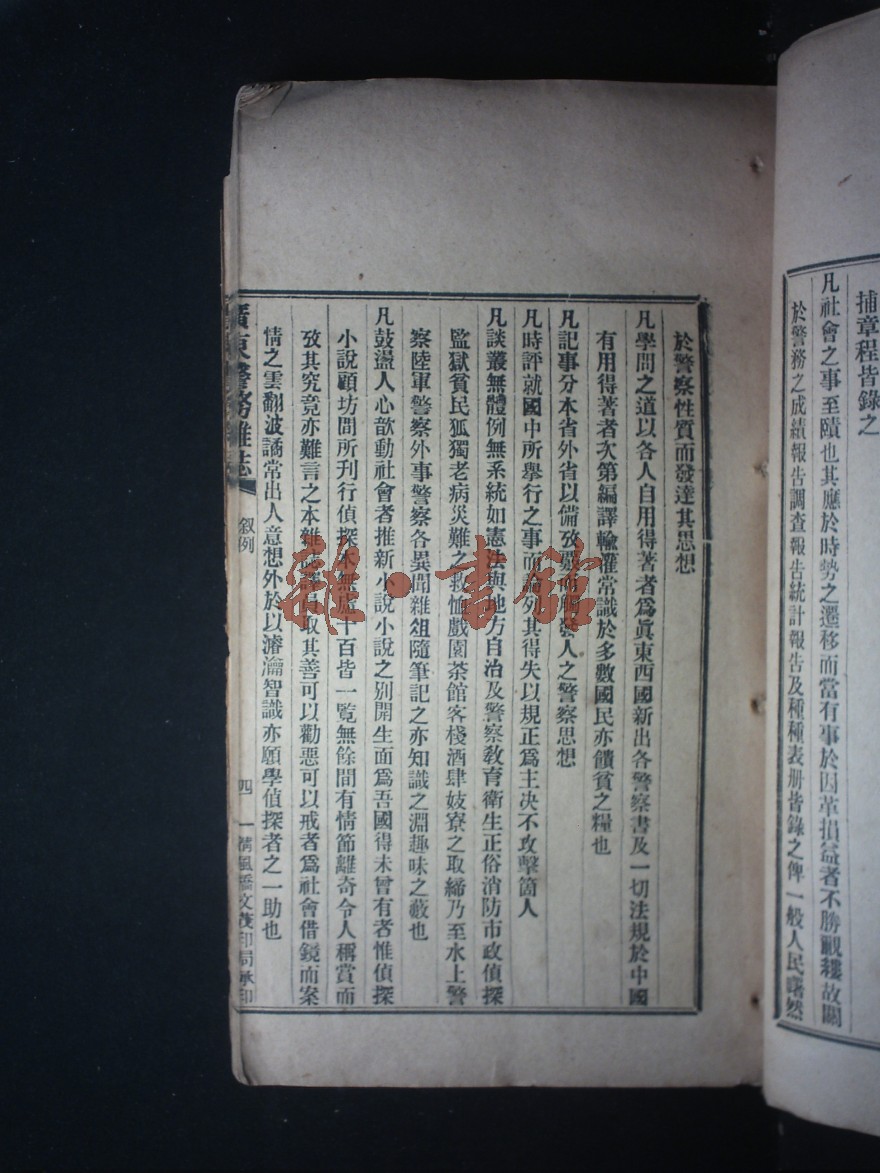 捕章程皆錄之
凡社會之事至賾也其應於時勢之遷移而當有事於因革損益者不勝覼縷故關
於警務之成績報告調查報告統計報告及種種表册皆錄之俾一般人民曙然
於警察性質而發達其思想
凡學問之道以各人自用得著者爲眞東西國新出各警察書及一切法規於中國
有用得著者次第編譯輸灌常識於多數國民亦饋貧之糧也
凡記事分本省外省以備攷覈而觸發人之警察思想
凡時評就國中所舉行之事而論列其得失以規正爲主决不攻擊箇人
凡談叢無體例無系統如憲法與地方自治及警察敎育衛生正俗消防市政偵探
監獄貧民孤獨老病災難之救恤戲園茶館客棧酒肆妓寮之取締乃至水上警
察陸軍警察外事警察各異聞雜俎隨筆記之亦知識之淵趣味之藪也
凡鼓盪人心歆動社會者推新小說小說之別開生面爲吾國得未曾有者惟偵探
小說顧坊間所刊行偵探本無慮千百皆一覽無餘間有情節離奇令人稱賞而
攷其究竟亦難言之本雜誌譯員取其善可以勸惡可以戒者爲社會借鏡而案
情之雲翻波譎常出人意想外於以濬瀹智識亦願學偵探者之一助也
廣東警務雜誌
叙例
四
清風橋文茂印局承印
雜·書館